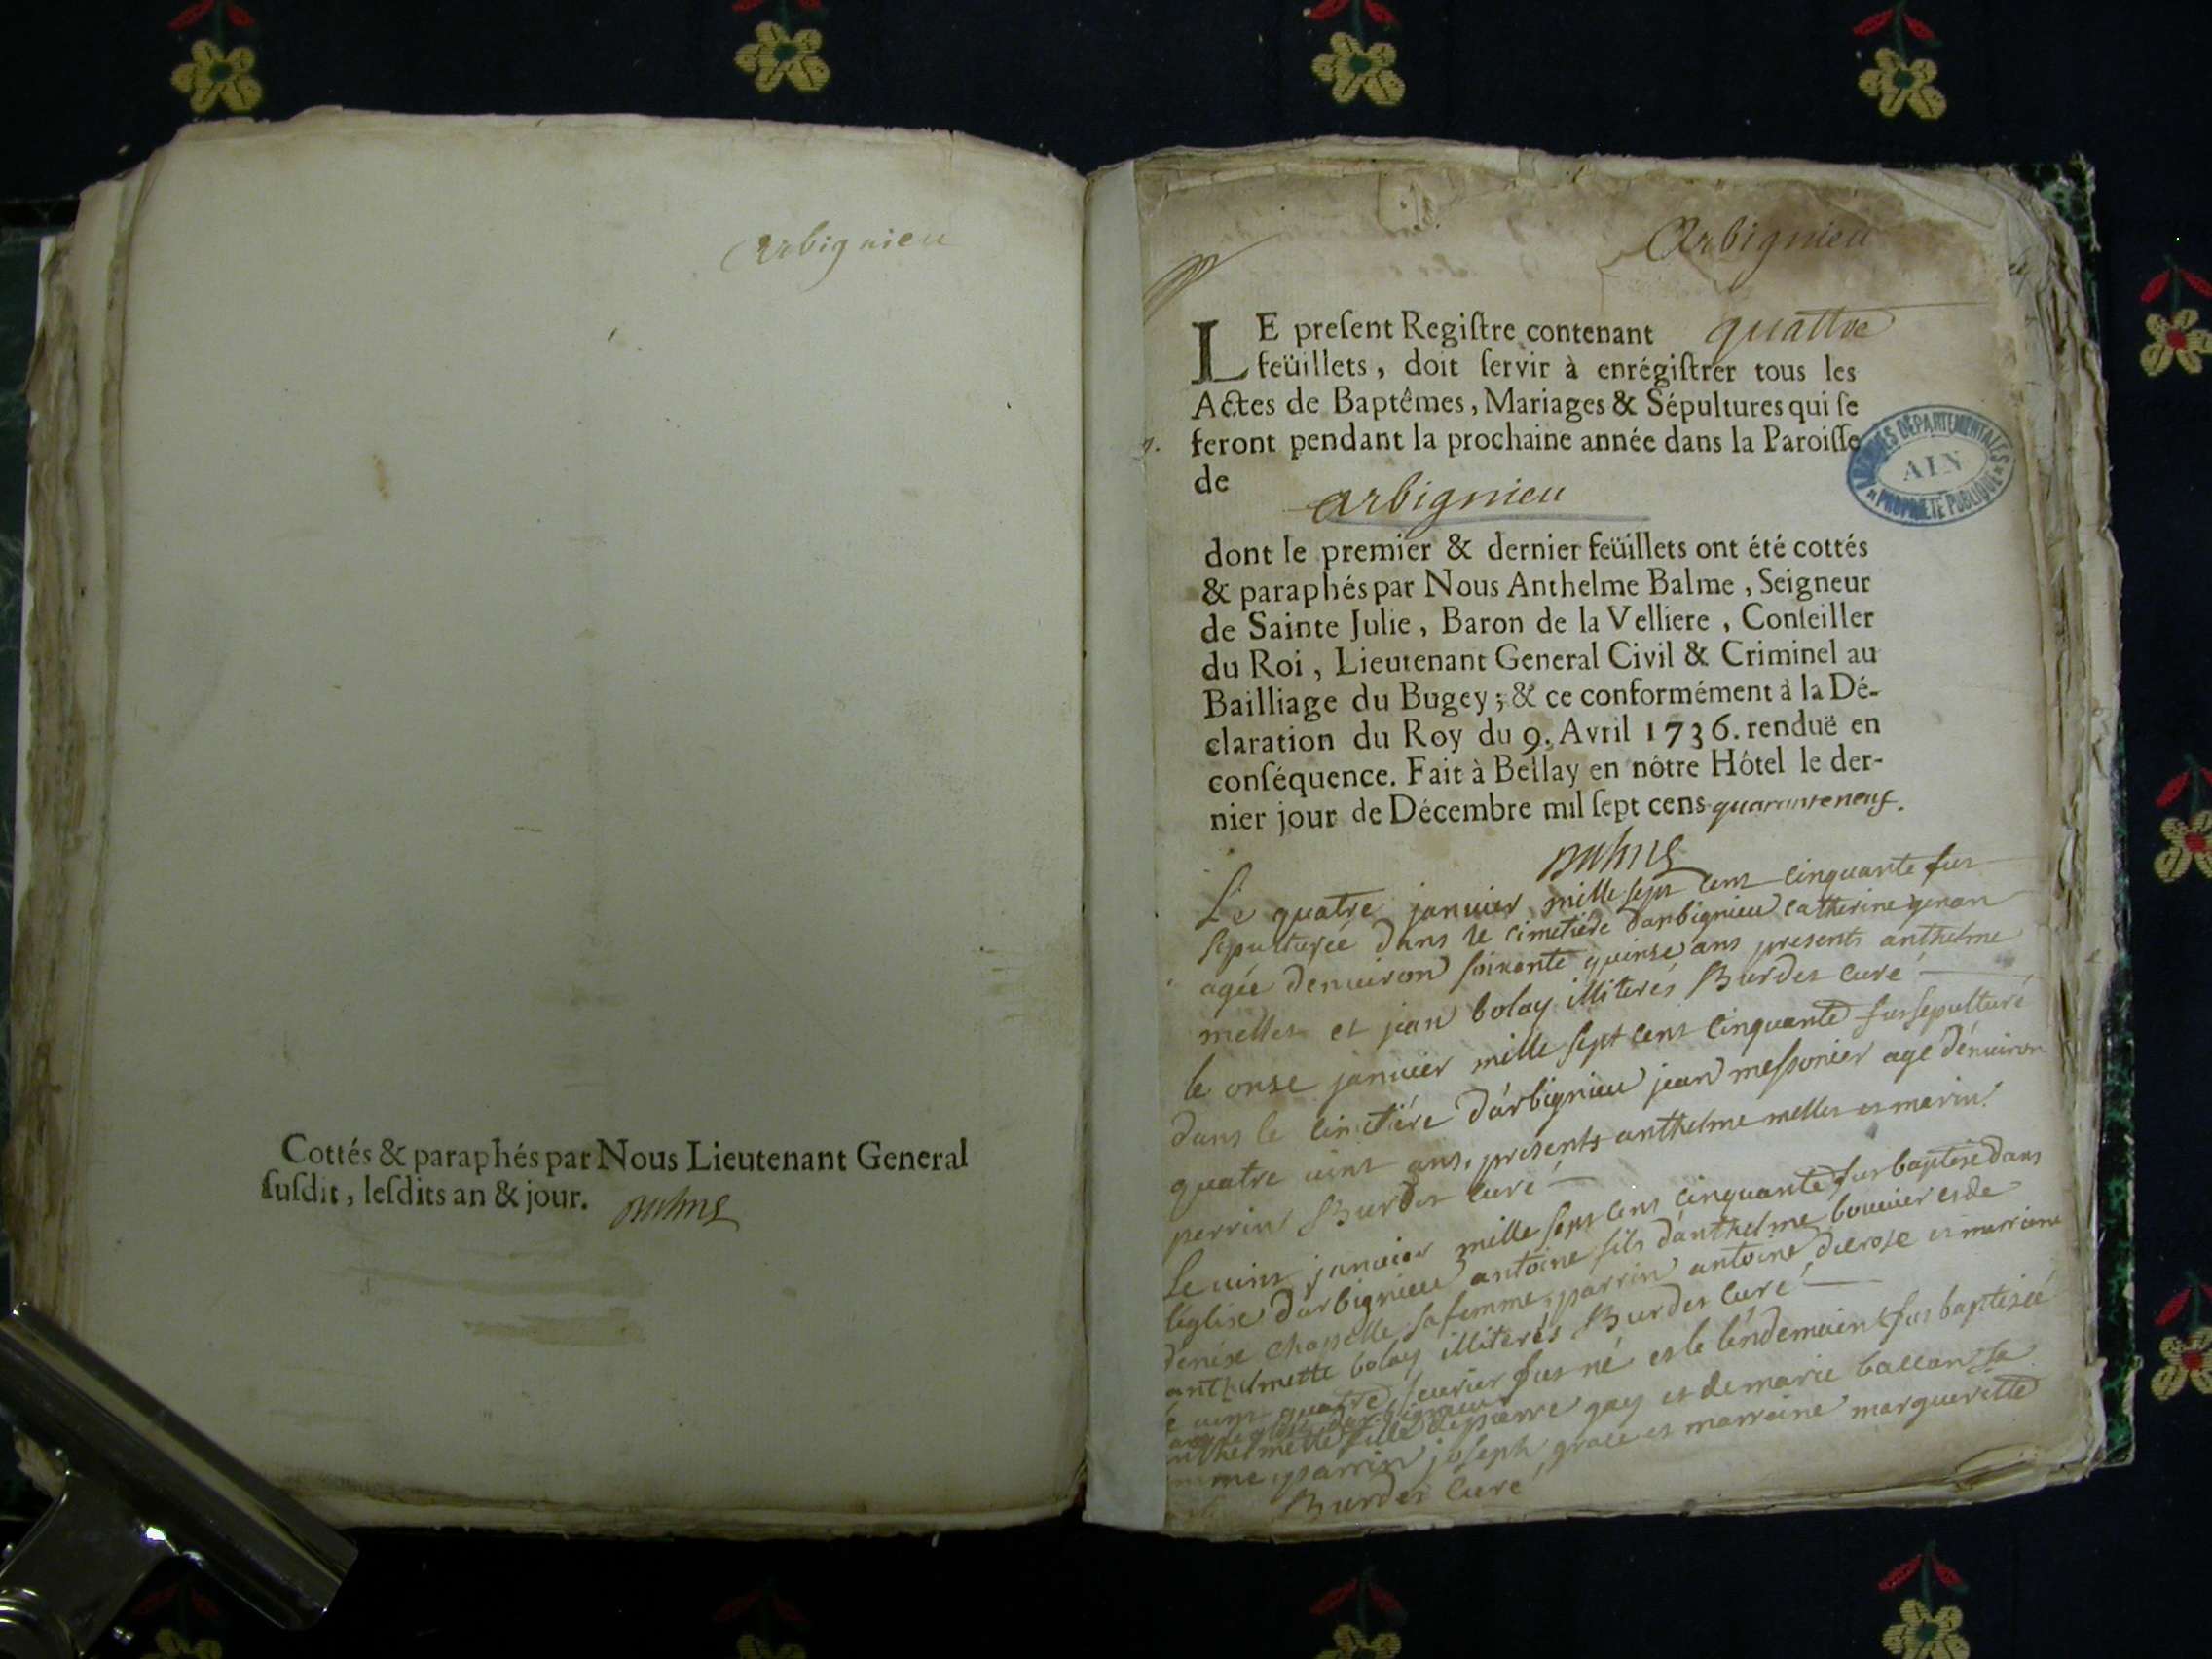 Arbignieu
Cottés & paraphés par Nous Lieutenant General
ſuſdit, leſdits an & jour.
Arbignieu
LE preſent Regiſtre contenant quattre
feüillets, doit ſervir à enrégiſtrer tous les
Actes de Baptêmes, Mariages & Sépultures qui ſe
feront pendant la prochaine année dans la Paroiſſe
de
arbignieu
ARCHIVES DÉPARTEMENTALES
AIN
PROPRIÉTÉ PUBLIQUE
dont le premier & dernier feüillets ont été cottés
& paraphés par Nous Anthelme Balme, Seigneur
de Sainte Julie, Baron de la Velliere, Conſeiller
du Roi, Lieutenant General Civil & Criminel au
Bailliage du Bugey; & ce conformément à la Dé-
claration du Roy du 9. Avril 1736. renduë en
conſéquence. Fait à Bellay en nôtre Hôtel le der-
nier jour de Décembre mil ſept cens quaranteneuf.
Le quatre janvier mille sept cent cinquante fut
sepulturée dans le cimetiére darbignieu catherine genan
agée denuiron soixante quinse ans presents anthelme
mellet et jean bolay illiterés Burdet curé
le onse januier mille sept cent cinquante fut sepulturé
dans le cimetiére d'arbignieu jean messonier agé dénuiron
quatre uint ans, presents anthelme mellet et marin
perrin Burdet curé
Le uint januier mille sept cent cinquante fut baptisé dans
léglise d'arbignieu antoine fils d'anthelme bouuier et de
denise chapelle sa femme, parrin antoine et marraine
anthelmette bolay illiterés Burdet curé
uint quatre feurier fut né et le léndemain fut baptisée
anthelmette fille de pierre gay et de marie ballan sa
parrin joseph grace et marraine margueritte
Burdet curé